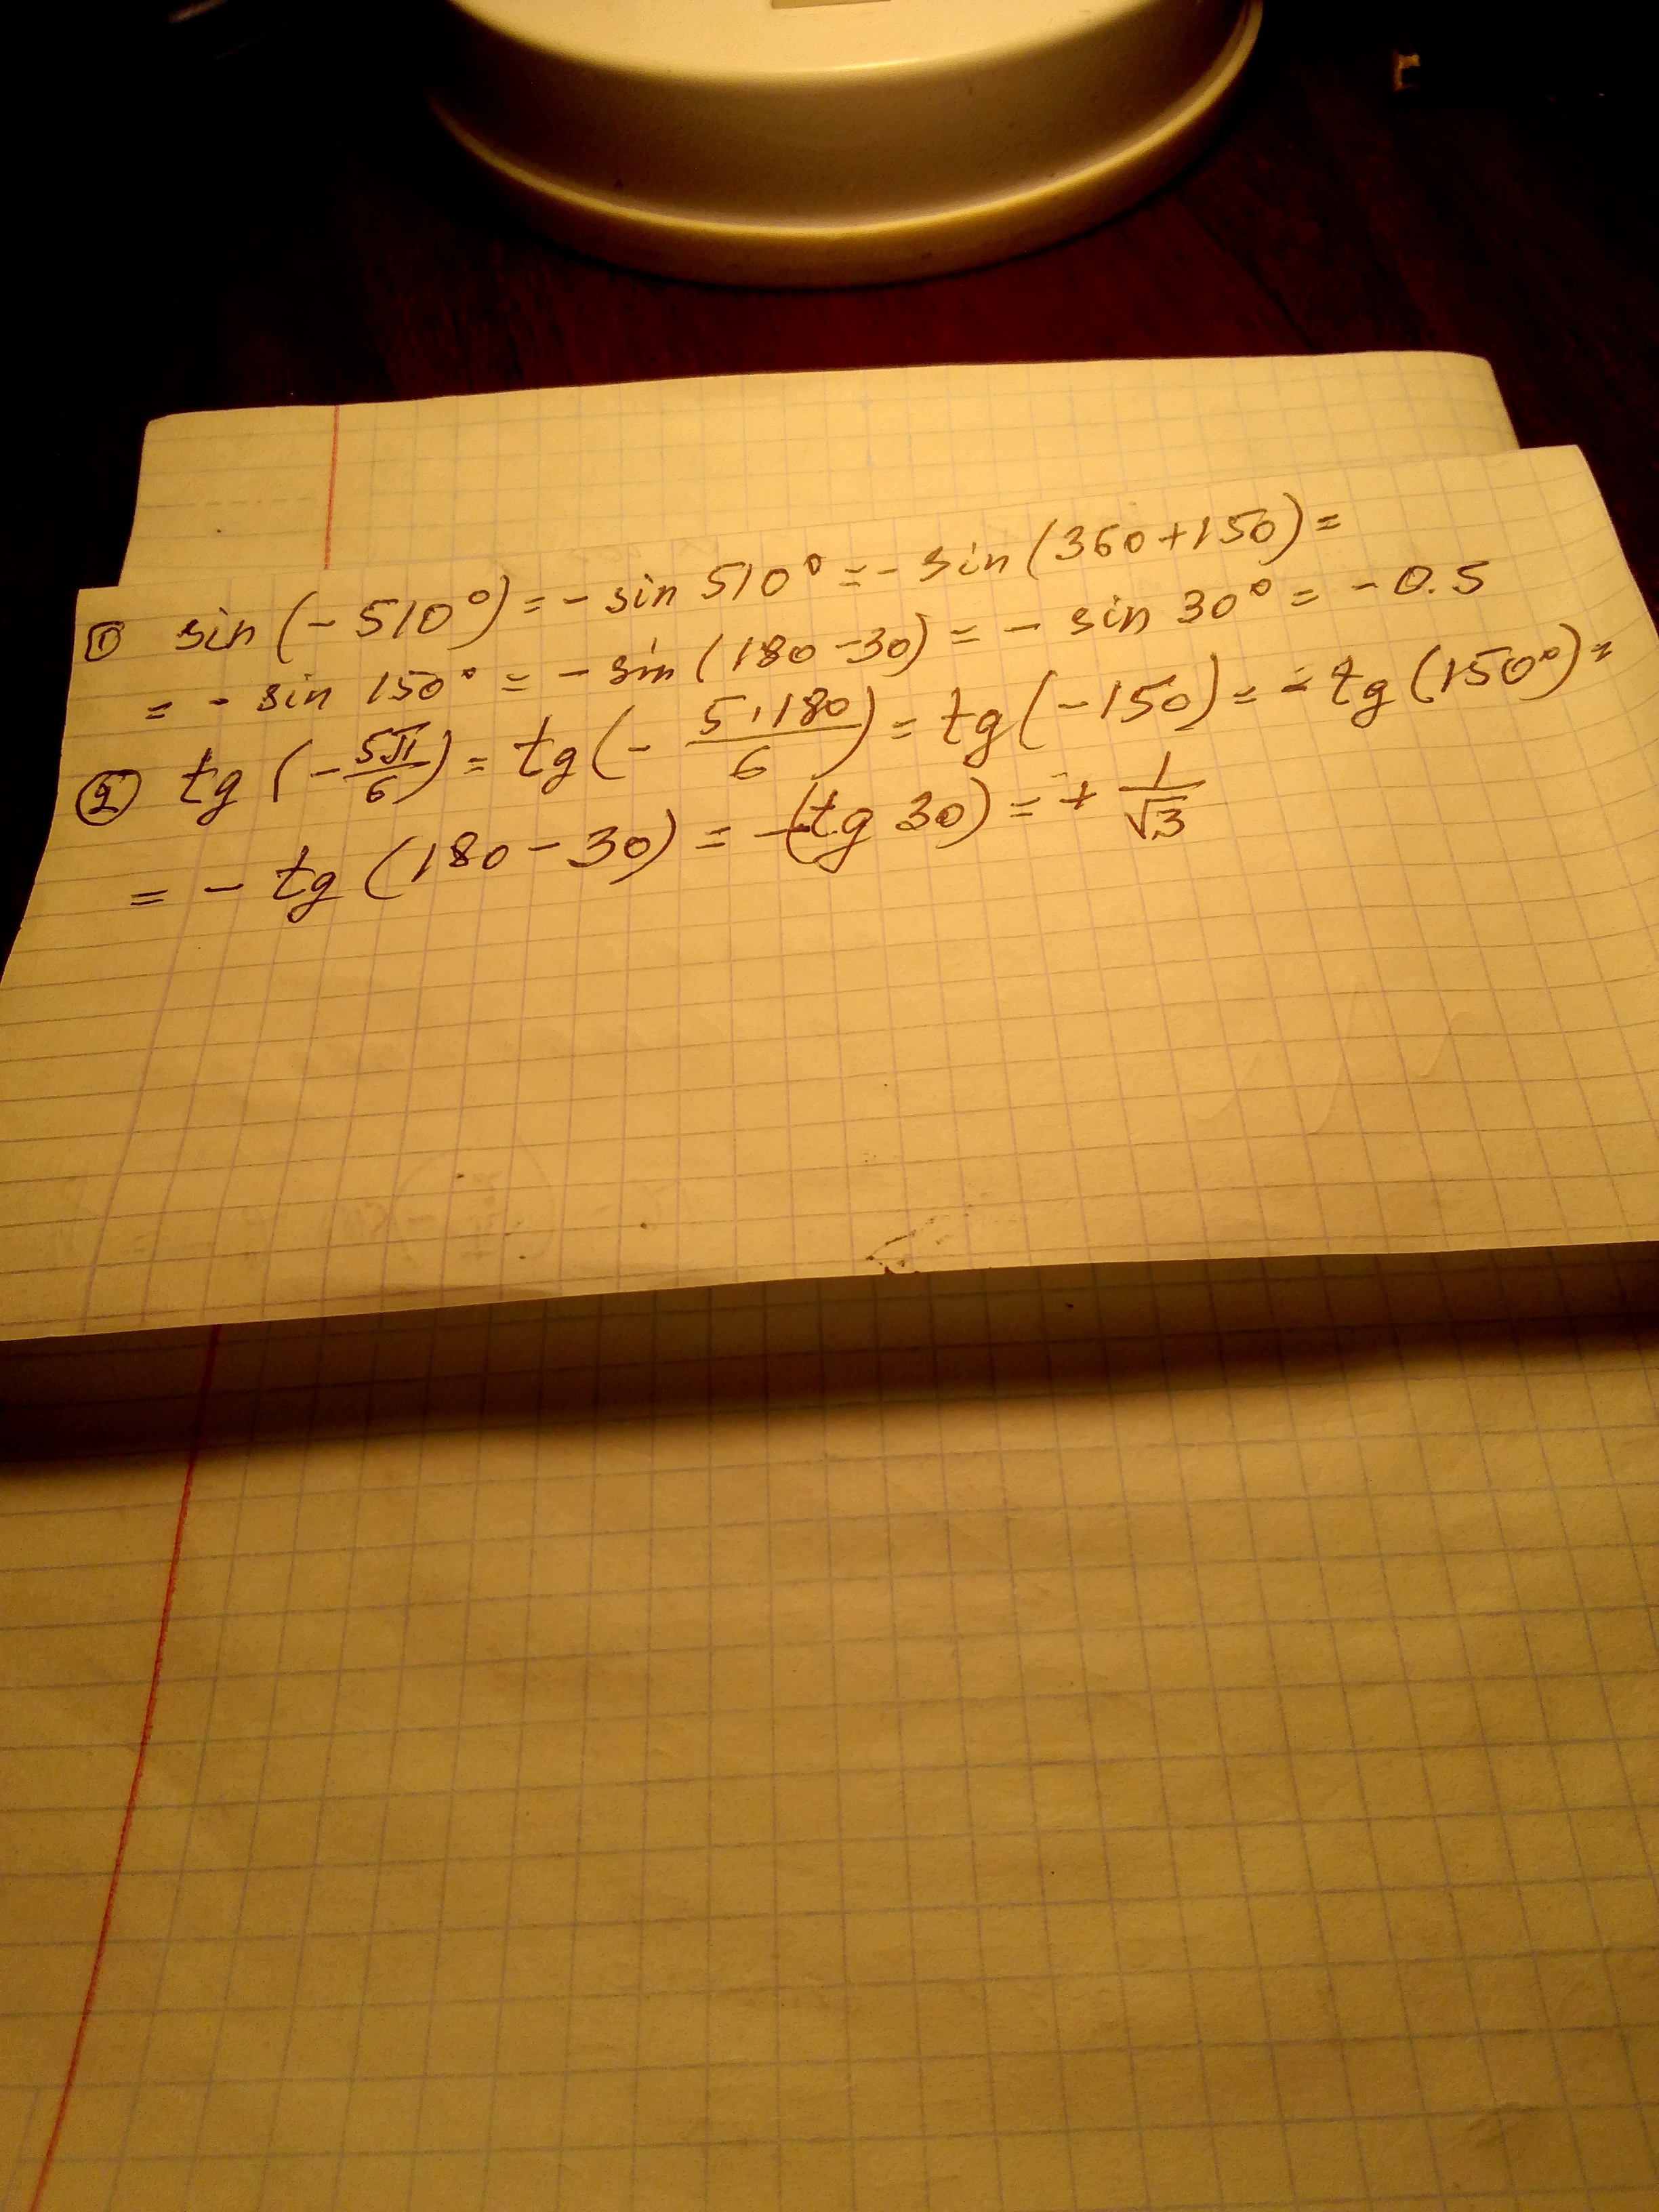 ① sin (-510°) = - sin 510° = - sin (360+150) =
= - sin 150° = - sin (180-30) = - sin 30° = -0.5
② tg (-5π/6) = tg (- 5·180/6) = tg (-150) = - tg (150°) =
= - tg (180-30) = -(tg 30) = + 1/√3